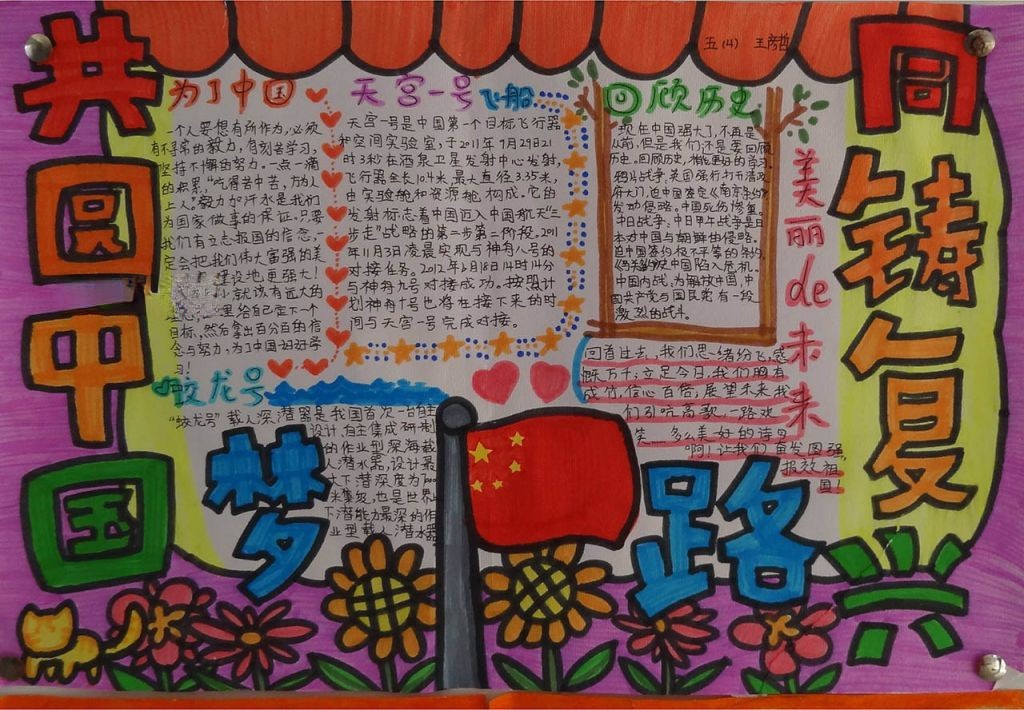 五(4) 王彦哲
共圆中国
梦
同铸复兴
路
为了中国
一个人要想有所作为,必须
有不寻常的毅力,有刻苦学习,
坚持不懈的努力。一点一滴
的积累,"吃得苦中苦,方为人
上人。"毅力加汗水是我们
为国家做事的保证。只要
我们有立志报国的信念,
定会把我们伟大富强的美
建设地更强大!
就该有远大的
里给自己定下一个
目标,然后拿出百分百的信
念与努力,为了中国好好学
习!
天宫一号飞船
天宫一号是中国第一个目标飞行器
和空间实验室,于2011年9月29日21
时3秒在酒泉卫星发射中心发射,
飞行器全长10.4米,最大直径3.35米,
由实验舱和资源舱构成。它的
发射标志着中国迈入中国航天"三
步走"战略的第二步第二阶段。2011
年11月3日凌晨实现与神舟八号的
对接任务。2012年6月18日14时14分
与神舟九号对接成功。按照计
划神舟十号也将在接下来的时
间与天宫一号完成对接。
回顾历史
现在中国强大了,不再是
从前,但是我们还是要回顾
历史。回顾历史,才能更好的学习。
鸦片战争:英国强行打开清政
府大门,迫中国签定《南京条约》
发动侵略。中国死伤惨重。
中日战争:中日甲午战争是日
本对中国与朝鲜的侵略。
迫中国签约极不平等的条约
中国陷入危机。
中国内战:为解放中国,中
国共产党与国民党有一段
激烈的战斗。
美丽de未来
回首过去,我们思绪纷飞,感
慨万千;立足今日,我们胸有
成竹,信心百倍;展望未来,我
们引吭高歌,一路欢
笑……多么美好的诗句
啊!让我们奋发图强,
报效祖
国!
蛟龙号
"蛟龙号"载人深潜器是我国首次一台自主
设计、自主集成研制
的作业型深海载
人潜水器,设计最
大下潜深度为7000
米集级,也是世界
下潜能力最深的作
业型载人潜水器